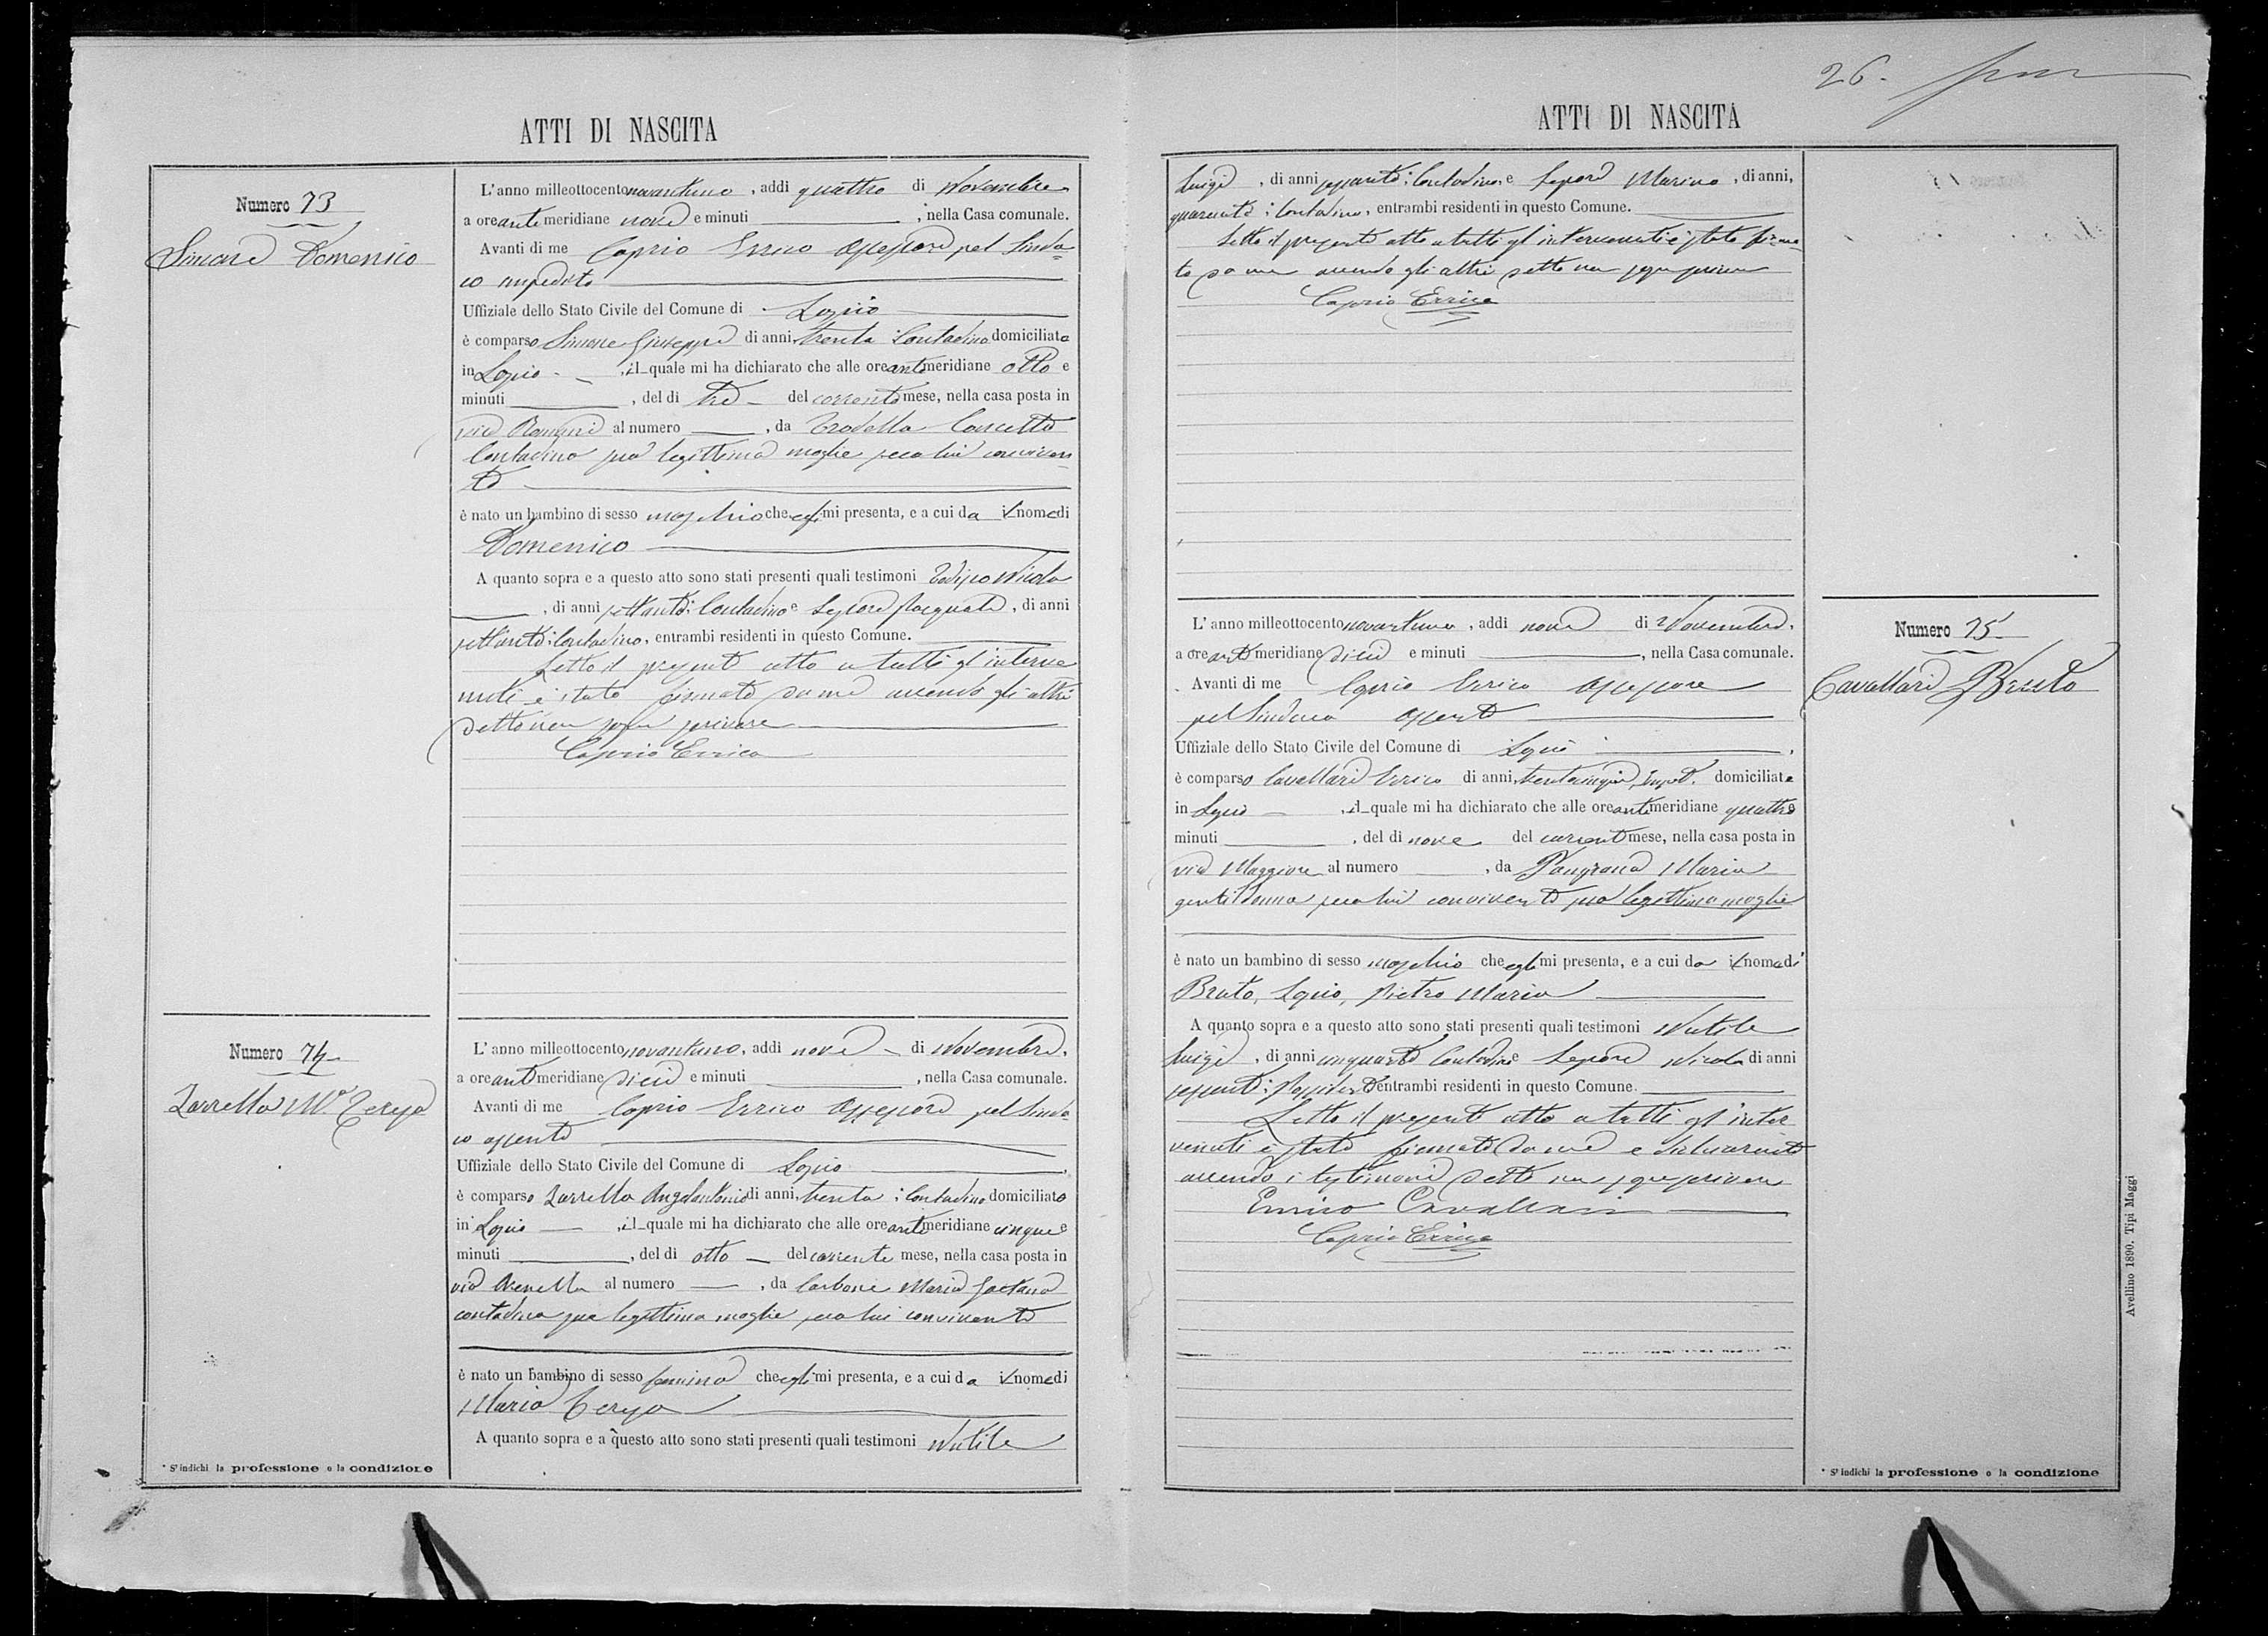 26.
ATTI DI NASCITA
Numero 73
Simone Domenico
L'anno milleottocentonovantuno, addi quattro di Novembre
a ore antimeridiane nove e minuti , nella Casa comunale.
Avanti di me Caprio Errico Assessore pel Sinda-
co impedito
Uffiziale dello Stato Civile del Comune di Lapio
è comparso Simone Giuseppe di anni trenta Contadino domiciliato
in Lapio , il quale mi ha dichiarato che alle ore antimeridiane otto e
minuti , del di tre del corrente mese, nella casa posta in
via al numero , da Concetta
Contadina sua legittima moglie seco lui conviven
te
è nato un bambino di sesso maschio che egli mi presenta, e a cui da il nome di
Domenico
A quanto sopra e a questo atto sono stati presenti quali testimoni Nicola
, di anni settanta; Contadino e Lepore Pasquale, di anni
settanta; Contadino, entrambi residenti in questo Comune.
Letto il presente atto a tutti gl'interve
nuti è stato firmato da me avendo gli altri
detto non saper scrivere
Caprio Errico
Numero 74
Zarrella Mª Teresa
L'anno milleottocentonovantuno, addi nove di Novembre,
a ore antimeridiane dieci e minuti , nella Casa comunale.
Avanti di me Caprio Errico Assessore pel Sinda
co assente
Uffiziale dello Stato Civile del Comune di Lapio
è comparso Zarrella Angelantonio di anni trenta; Contadino domiciliato
in Lapio , il quale mi ha dichiarato che alle ore antimeridiane cinque e
minuti , del di otto del corrente mese, nella casa posta in
via Arenella al numero , da Carbone Maria Gaetana
contadina sua legittima moglie seco lui convivente
è nato un bambino di sesso feminino che egli mi presenta, e a cui da il nome di
Maria Teresa
A quanto sopra e a questo atto sono stati presenti quali testimoni Nutile
* S'indichi la professione o la condizione
ATTI DI NASCITA
Luigi , di anni sessanta; Contadino, e Lepore Marino , di anni,
quaranta; Contadino, entrambi residenti in questo Comune.
Letto il presente atto a tutti gl'intervenuti è stato firma-
to da me avendo gli altri detto non saper scrivere
Caprio Errico
L'anno milleottocentonovantuno, addi nove di Novembre,
a ore antimeridiane dieci e minuti , nella Casa comunale.
Avanti di me Caprio Errico Assessore
pel Sindaco assente
Uffiziale dello Stato Civile del Comune di Lapio
è comparso Cavallari Errico di anni trentacinque, domiciliato
in Lapio , il quale mi ha dichiarato che alle ore antimeridiane quattro
minuti , del di nove del corrente mese, nella casa posta in
via Maggiore al numero , da Maria
gentildonna seco lui convivente sua legittima moglie
è nato un bambino di sesso maschio che egli mi presenta, e a cui da il nome di
Bruto, Lapio, Pietro Maria
A quanto sopra e a questo atto sono stati presenti quali testimoni Nutile
Luigi , di anni cinquanta Contadino e Lepore Nicola di anni
sessanta; Possidente entrambi residenti in questo Comune.
Letto il presente atto a tutti gl'inter
venuti è stato firmato da me e dichiarante
avendo i testimoni detto non saper scrivere
Enrico Cavallari
Caprio Errico
Numero 75
Cavallari Bruto
* S'indichi la professione o la condizione
Avellino 1890. Tipi Maggi